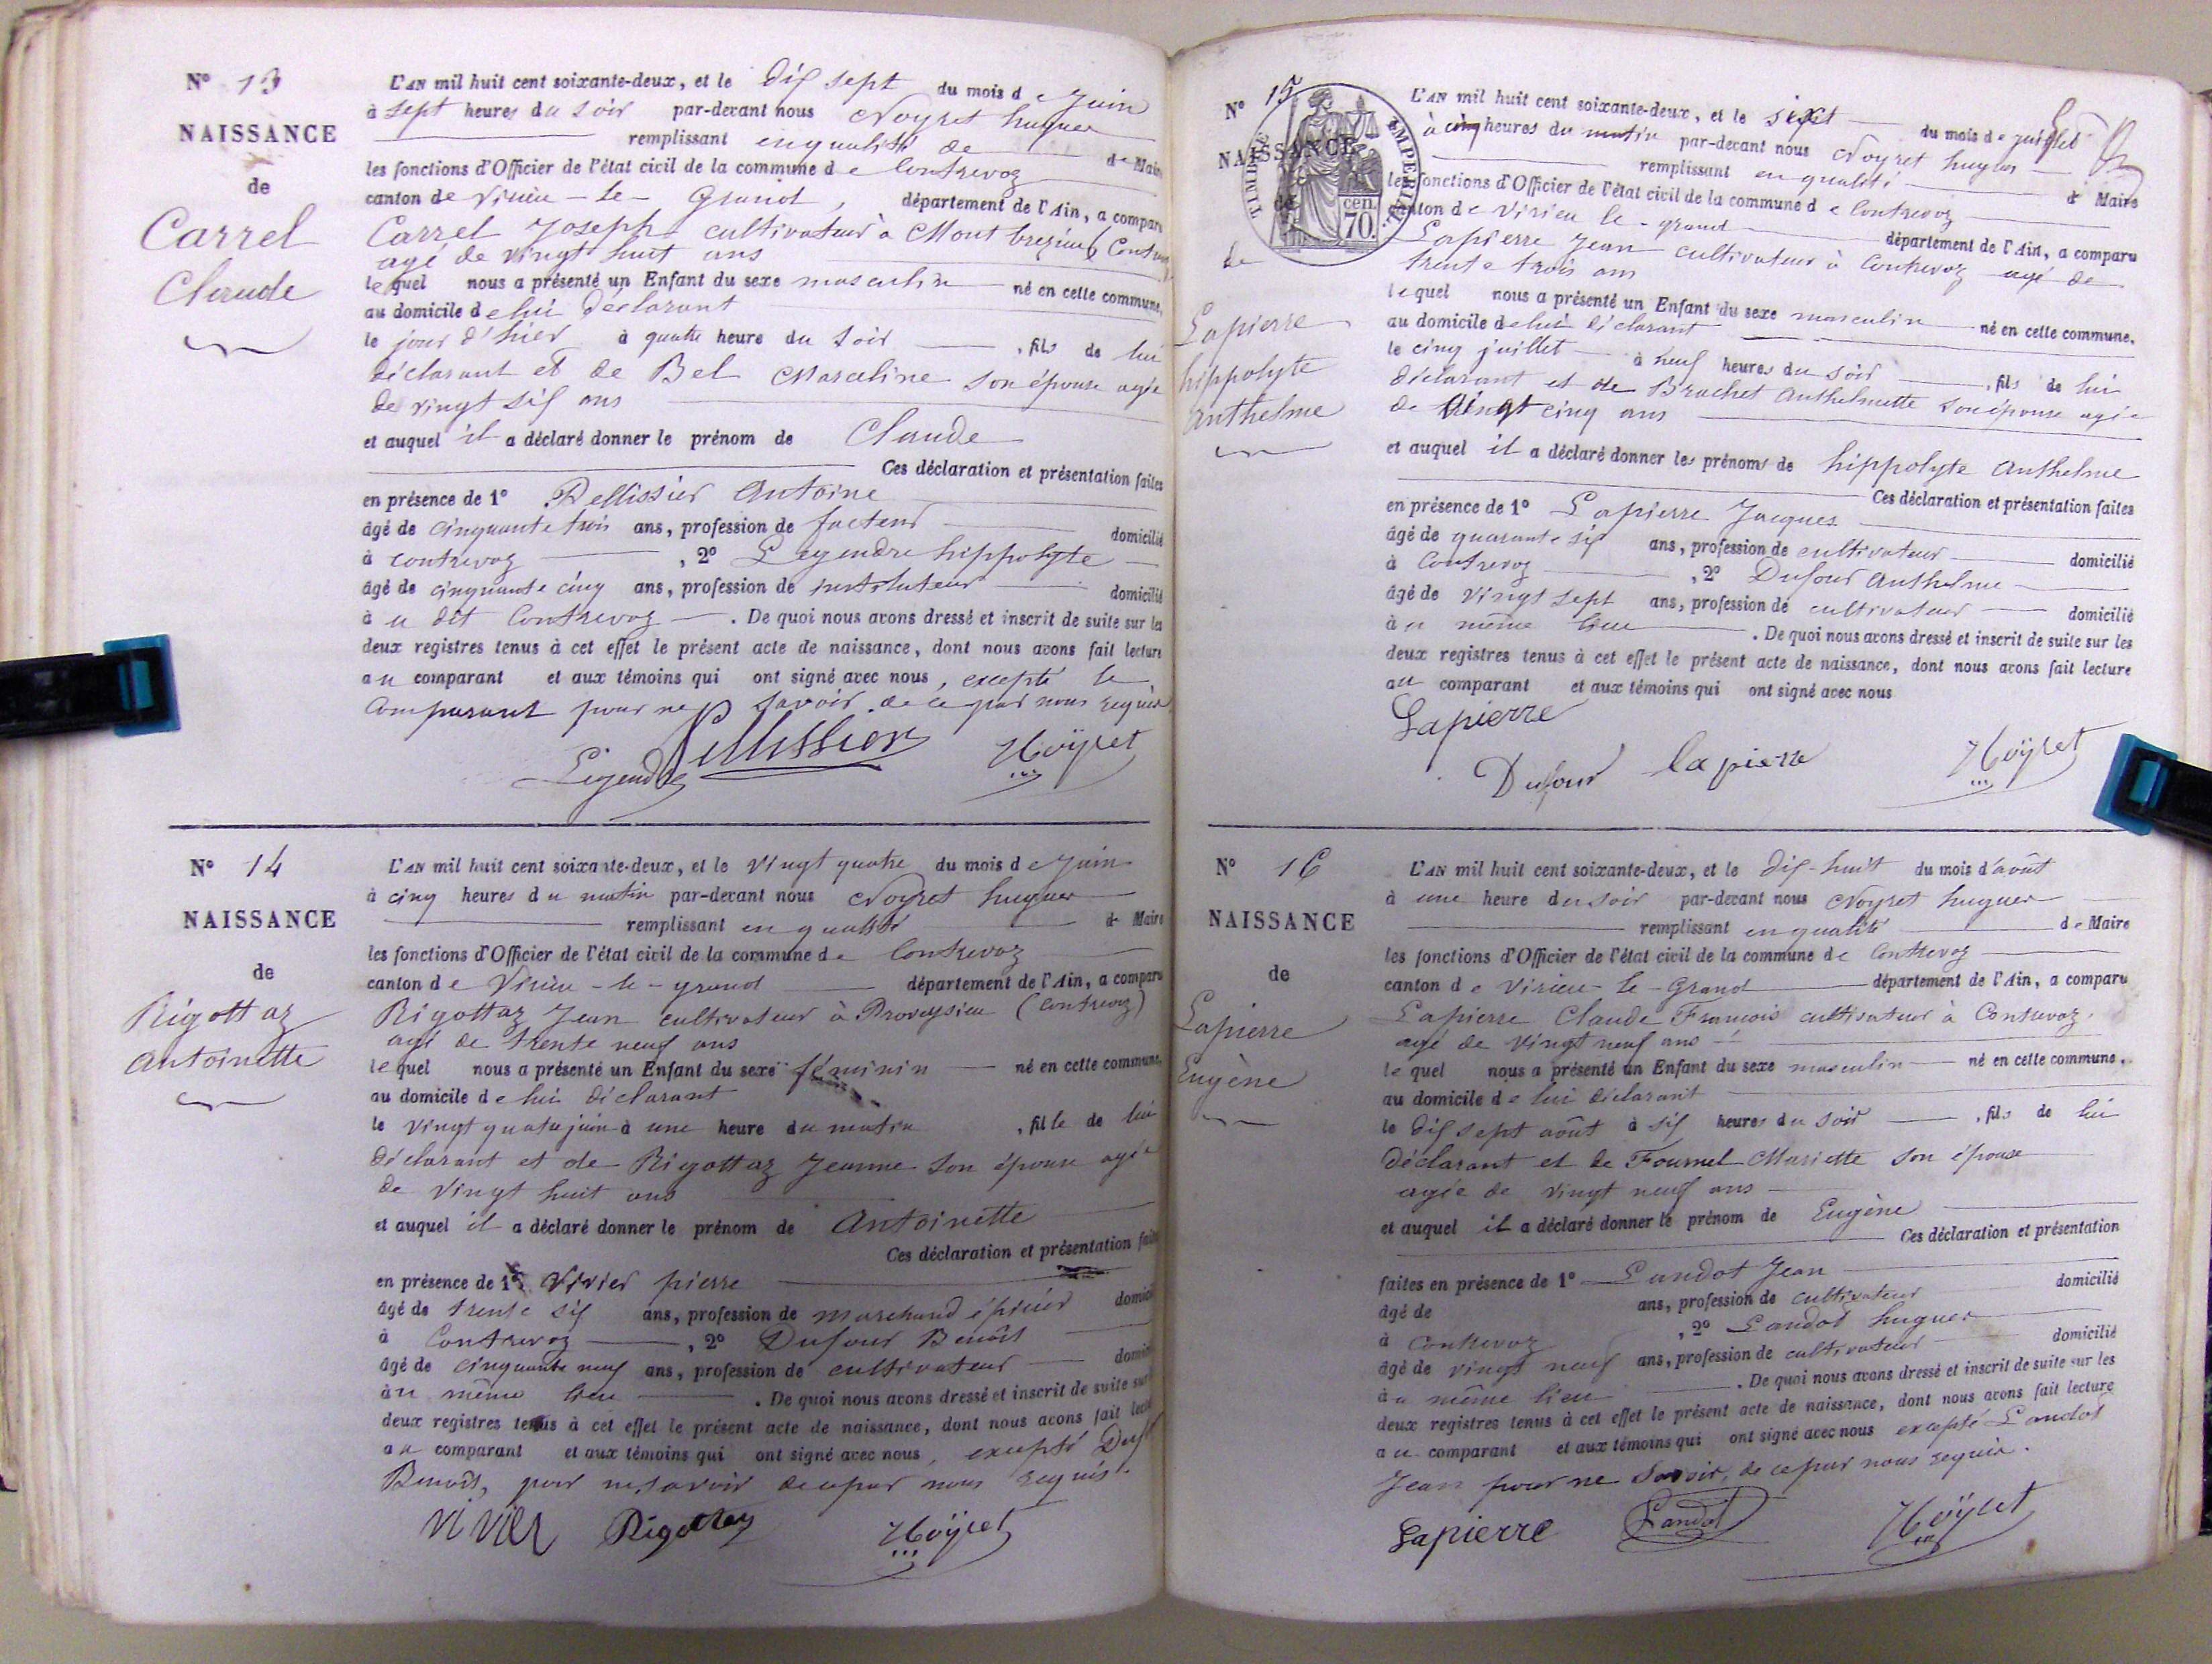 N° 13
NAISSANCE
de
Carrel
Claude
L'AN mil huit cent soixante-deux, et le dix sept du mois de juin
à sept heures du soir par-devant nous Noyret huguer
remplissant en qualité de de Maire
les fonctions d'Officier de l'état civil de la commune de Contrevoz
canton de Virieu-le-Grand, département de l'Ain, a comparu
Carrel Joseph cultivateur à Mont
agé de vingt huit ans
lequel nous a présenté un Enfant du sexe masculin né en cette commune,
au domicile de lui déclarant
le jour d'hier à quatre heure du soir, fils de lui
déclarant et de Bel Marceline son épouse agée
de vingt six ans
et auquel il a déclaré donner le prénom de Claude
Ces déclaration et présentation faites
en présence de 1° Pellissier Antoine
âgé de cinquante trois ans, profession de facteur domicilié
à contrevoz, 2° Legendre hippolyte
âgé de cinquante cinq ans, profession de instituteur domicilié
à u dit Contrevoz. De quoi nous avons dressé et inscrit de suite sur les
deux registres tenus à cet effet le présent acte de naissance, dont nous avons fait lecture
au comparant et aux témoins qui ont signé avec nous, excepté le
comparant pour ne savoir de ce par nous requis
Legendre Pellissier Noÿret
N° 14
NAISSANCE
de
Rigottaz
Antoinette
L'AN mil huit cent soixante-deux, et le vingt quatre du mois de juin
à cinq heures du matin par-devant nous Noyret huguer
remplissant en qualité de Maire
les fonctions d'Officier de l'état civil de la commune de Contrevoz
canton de Virieu-le-grand département de l'Ain, a comparu
Rigottaz Jean cultivateur à Proveysieu (Contrevoz)
agé de trente neuf ans
lequel nous a présenté un Enfant du sexe féminin né en cette commune,
au domicile de lui déclarant
le vingt quatre juin à une heure du matin, fille de lui
déclarant et de Rigottaz Jeanne son épouse agée
de vingt huit ans
et auquel il a déclaré donner le prénom de Antoinette
Ces déclaration et présentation faites
en présence de 1° Vivier pierre
âgé de trente six ans, profession de marchand épicier domicilié
à Contrevoz, 2° Dufour Benoît
âgé de cinquante neuf ans, profession de cultivateur domicilié
à u même lieu. De quoi nous avons dressé et inscrit de suite sur
deux registres tenus à cet effet le présent acte de naissance, dont nous avons fait lecture
au comparant et aux témoins qui ont signé avec nous, excepté Duf
Benoît, pour ne savoir de ce par nous requis.
Vivier Rigottaz Noÿret
N° 15
NAISSANCE
de
TIMBRE IMPERIAL
70 cen.
de
Lapierre
hippolyte
Anthelme
L'AN mil huit cent soixante-deux, et le sept du mois de juillet
à cinq heures du matin par-devant nous Noyret huguer
remplissant en qualité de Maire
les fonctions d'Officier de l'état civil de la commune de Contrevoz
canton de Virieu le-grand département de l'Ain, a comparu
Lapierre Jean cultivateur à Contrevoz agé de
trente trois ans
lequel nous a présenté un Enfant du sexe masculin né en cette commune,
au domicile de lui déclarant
le cinq juillet à neuf heures du soir, fils de lui
déclarant et de Brachet Anthelmette son épouse agée
de vingt cinq ans
et auquel il a déclaré donner les prénoms de hippolyte Anthelme
Ces déclaration et présentation faites
en présence de 1° Lapierre Jacques
âgé de quarante six ans, profession de cultivateur domicilié
à Contrevoz, 2° Dufour Anthelme
âgé de vingt sept ans, profession de cultivateur domicilié
à u même lieu. De quoi nous avons dressé et inscrit de suite sur les
deux registres tenus à cet effet le présent acte de naissance, dont nous avons fait lecture
au comparant et aux témoins qui ont signé avec nous
Lapierre
Dufour lapierre Noÿret
N° 16
NAISSANCE
de
Lapierre
Eugène
L'AN mil huit cent soixante-deux, et le dix-huit du mois d'août
à une heure du soir par-devant nous Noyret huguer
remplissant en qualité de Maire
les fonctions d'Officier de l'état civil de la commune de Contrevoz
canton de Virieu-le-Grand département de l'Ain, a comparu
Lapierre Claude François cultivateur à Contrevoz,
agé de vingt neuf ans
lequel nous a présenté un Enfant du sexe masculin né en cette commune,
au domicile de lui déclarant
le dix sept août à six heures du soir, fils de lui
déclarant et de Fournel Mariette son épouse
agée de vingt neuf ans
et auquel il a déclaré donner le prénom de Eugène
Ces déclaration et présentation
faites en présence de 1° Landot Jean
âgé de ans, profession de cultivateur domicilié
à Contrevoz, 2° Landot huguer
âgé de vingt neuf ans, profession de cultivateur domicilié
à u même lieu. De quoi nous avons dressé et inscrit de suite sur les
deux registres tenus à cet effet le présent acte de naissance, dont nous avons fait lecture
au comparant et aux témoins qui ont signé avec nous excepté Landot
Jean pour ne savoir, de ce par nous requis.
Lapierre Landot Noÿret